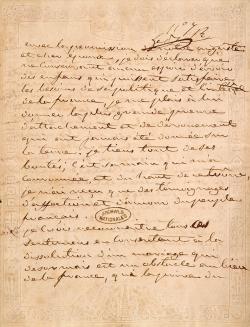 avec la permission
et cher époux, je dois déclarer que
ne conservant aucun espoir d'avoir
des enfans qui puissent satisfaire
les besoins de sa politique et l'intérêt
de la france, je me plais à lui
donner la plus grande preuve
d'attachement et de dévouement
qui ait jamais été donnée sur
la terre. je tiens tout de ses
bontés; c'est sa main qui m'a
couronnée et du haut de ce trône
je n'ai reçu que des témoignages
d'affection et d'amour du peuple
français.
ARCHIVES
NATIONALES
je crois reconnaître tous ces
sentimens en consentant à la
dissolution d'un mariage qui
désormais est un obstacle au bien
de la france, qui la prive du